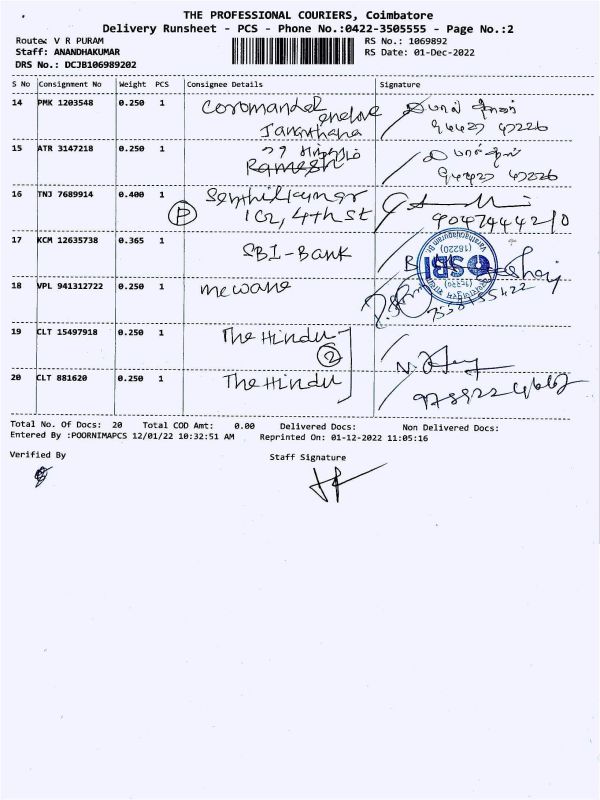 THE PROFESSIONAL COURIERS, Coimbatore
Delivery Runsheet - PCS - Phone No.:0422-3505555 - Page No.:2
Route: V R PURAM RS No.: 1069892
Staff: ANANDHAKUMAR RS Date: 01-Dec-2022
DRS No.: DCJB106989202
S No Consignment No Weight PCS Consignee Details Signature
14 PMK 1203548 0.250 1 Coromandel
enclave
Jananthana
15 ATR 3147218 0.250 1
Ramesh
16 TNJ 7689914 0.400 1 Senthilkumar
P 102, 4th St 9047444210
17 KCM 12635738 0.365 1 SBI-Bank
SBI
(16220)
18 VPL 941312722 0.250 1 mcwane
19 CLT 15497918 0.250 1 The Hindu
2
20 CLT 881620 0.250 1 The Hindu
Total No. Of Docs: 20 Total COD Amt: 0.00 Delivered Docs: Non Delivered Docs:
Entered By :POORNIMAPCS 12/01/22 10:32:51 AM Reprinted On: 01-12-2022 11:05:16
Verified By Staff Signature